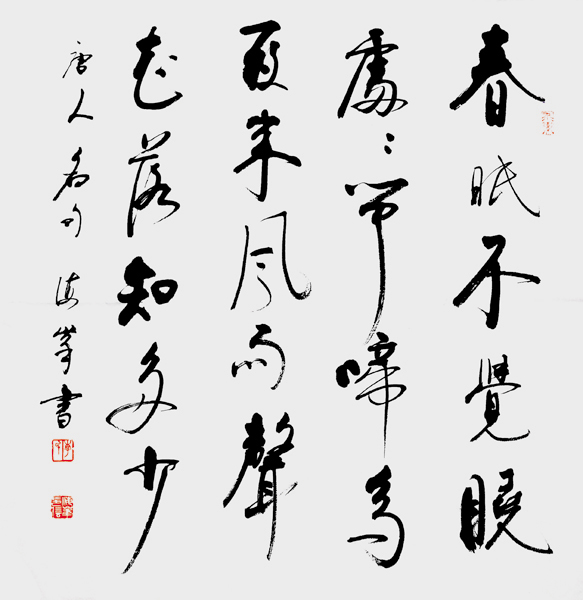 春眠不覺曉
處〻聞啼鳥
夜来風雨聲
花落知多少
唐人名句 海峯書